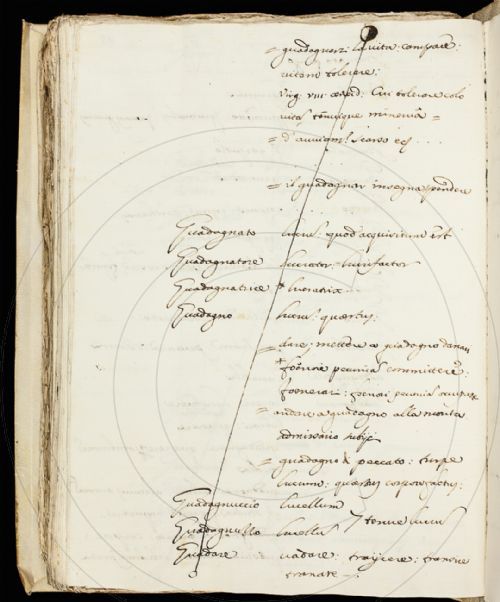 = guadagnarsi la vita. comparare:
vitam tolerare;
Virg. VIII. Cui tolerare colo
vitam tenuique minerva =
=
= il guadagnar insegna spendere
Guadagnato lucrus. quod acquisitum est
Guadagnatore lucrator. lucrifactor
Guadagnatrice lucratrix
Guadagno lucrus. quæstus.
= dare, mettere a guadagno danari
fœnore pecunia committere.
fœnerari: pecunia
= andare a guadagno alla monta
admissario
= guadagno di peccato: turpe
lucrum: quæstus corpore factus.
Guadagnuccio lucellum
Guadagnuzzo lucellus tenue lucrus
Guadare vadare: trajicere: transve
tranate